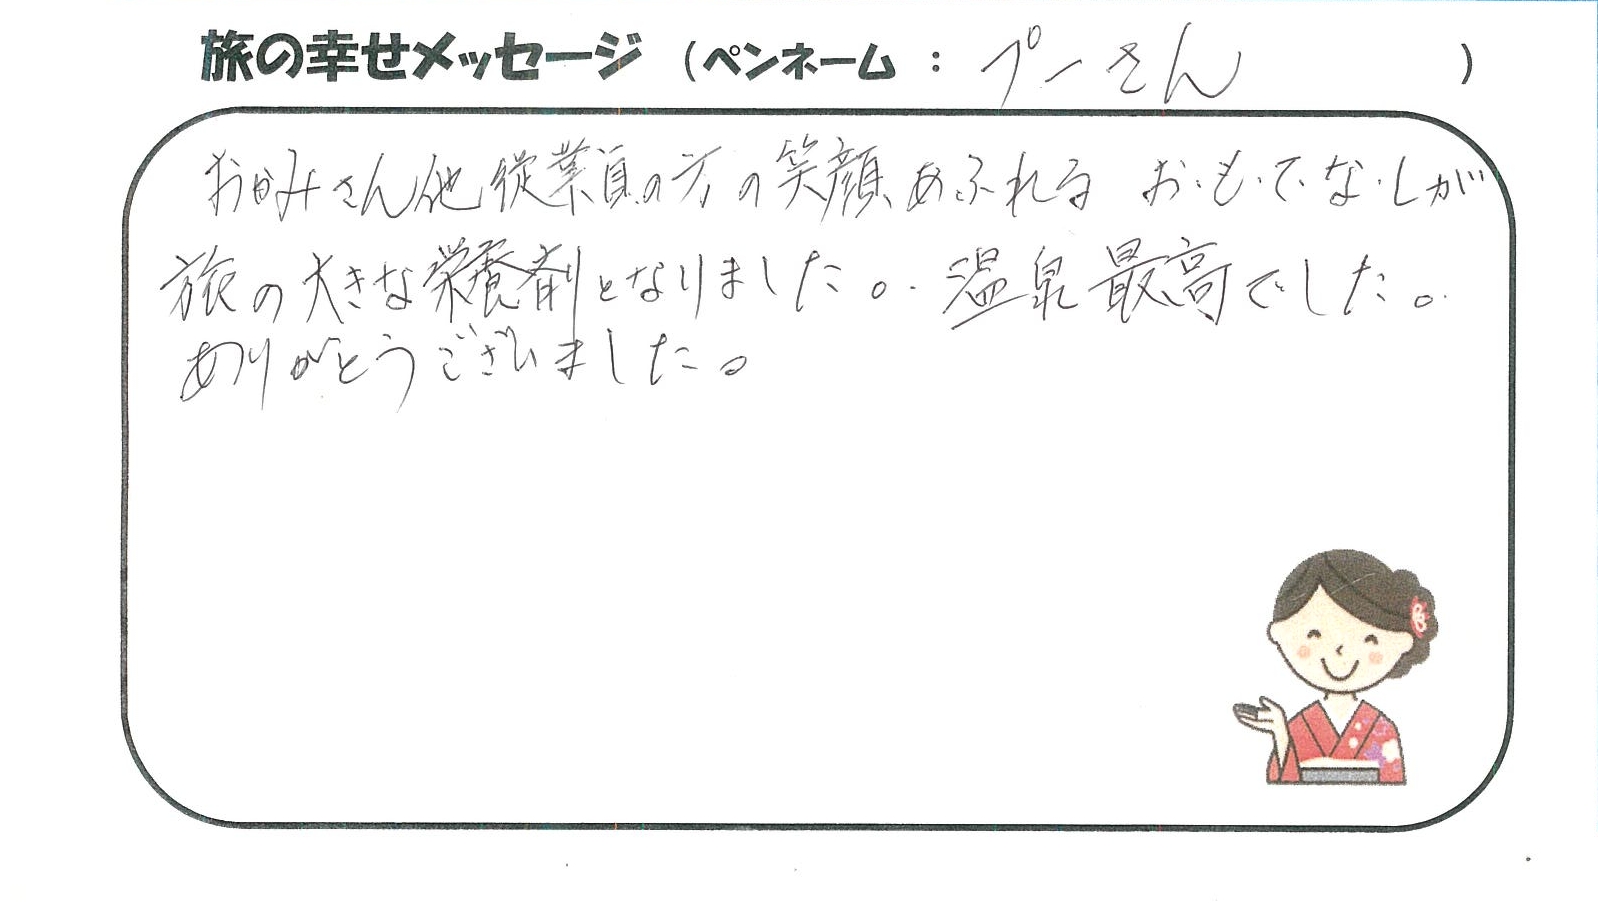 旅の幸せメッセージ (ペンネーム : プーさん )
おかみさん他従業員の方の笑顔あふれる お・も・て・な・しが
旅の大きな栄養剤となりました。温泉最高でした。
ありがとうございました。